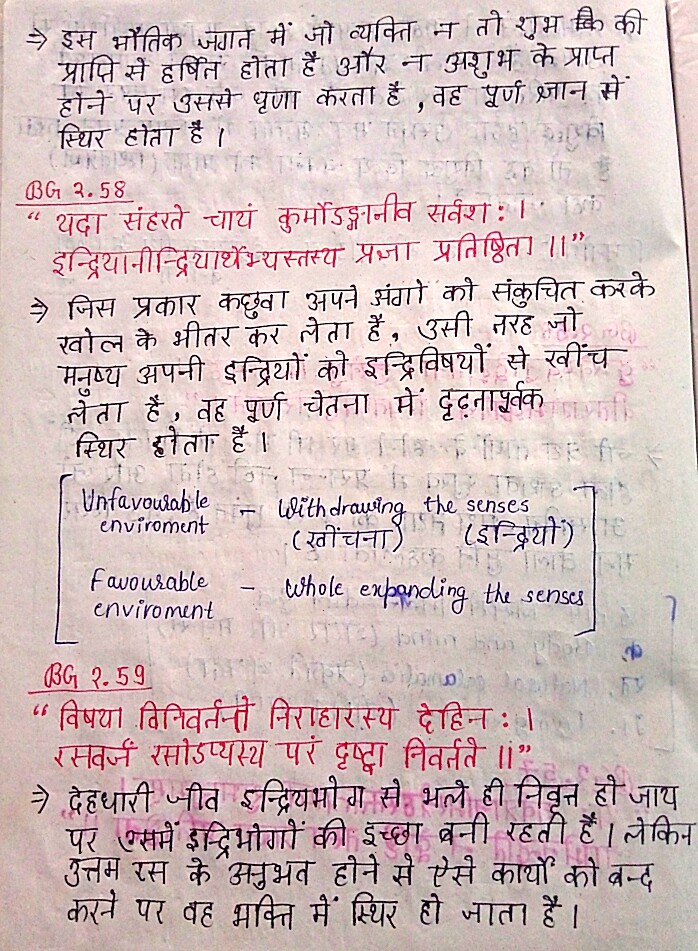 ⇒ इस भौतिक जगत में जो व्यक्ति न तो शुभ की
प्राप्ति से हर्षित होता है और न अशुभ के प्राप्त
होने पर उससे घृणा करता है , वह पूर्ण ज्ञान में
स्थिर होता है ।
BG 2.58
“ यदा संहरते चायं कुर्मोऽङ्गानीव सर्वश : ।
इन्द्रियानीन्द्रियार्थेभ्यस्तस्य प्रज्ञा प्रतिष्ठिता ।।”
⇒ जिस प्रकार कछुवा अपने अंगो को संकुचित करके
खोल के भीतर कर लेता है , उसी तरह जो
मनुष्य अपनी इन्द्रियों को इन्द्रिविषयों से खींच
लेता है , वह पूर्ण चेतना में दृढ़तापूर्वक
स्थिर होता है ।
Unfavourable - Withdrawing the senses
enviroment (खींचना) (इन्द्रियों)
Favourable - Whole expanding the senses
enviroment
BG 2.59
“ विषया विनिवर्तन्ते निराहारस्य देहिन : ।
रसवर्जं रसोऽप्यस्य परं दृष्ट्वा निवर्तते ।।”
⇒ देहधारी जीव इन्द्रियभोग से भले ही निवृत्त हो जाय
पर उसमें इन्द्रिभोगों की इच्छा बनी रहती है । लेकिन
उत्तम रस के अनुभव होने से ऐसे कार्यों को बन्द
करने पर वह भक्ति में स्थिर हो जाता है ।